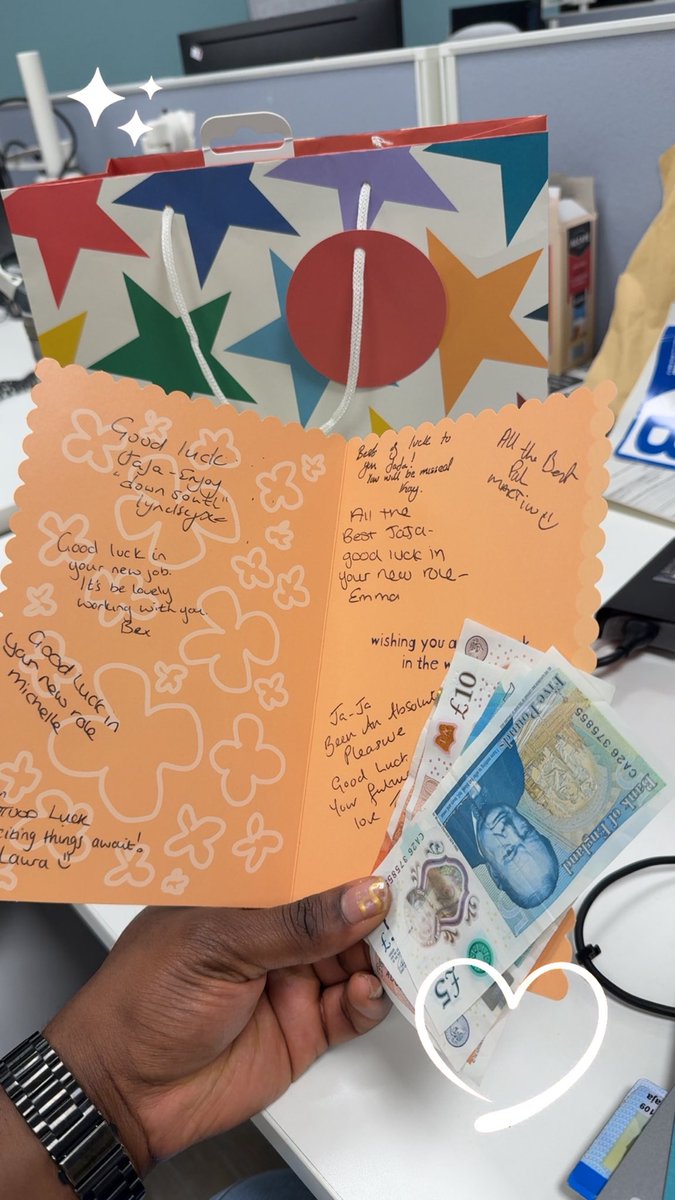 Good luck
JaJa - Enjoy
"down south"
Lyndsey x
Good luck in
your new job.
It's be lovely
working with you.
Bex
Good luck in
your new role
michelle
Good Luck
citing things await!
Laura
Best of luck to
you JaJa!
You will be missed
All the Best
Pal
martin
All the
Best JaJa-
good luck in
your new role-
Emma
wishing you a
in the w
Ja-Ja
Been An Absolut
Pleasure
Good Luck
Your futur
love
£10
Five Pounds
CA26 375855
Bank of England
CA26 375855
£5
109
aja
B